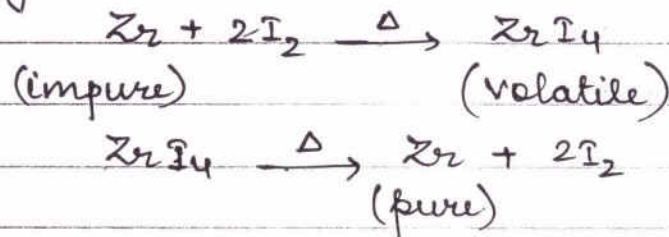 Zr + 2I₂ —Δ→ ZrI₄
(impure) (volatile)
ZrI₄ —Δ→ Zr + 2I₂
(pure)